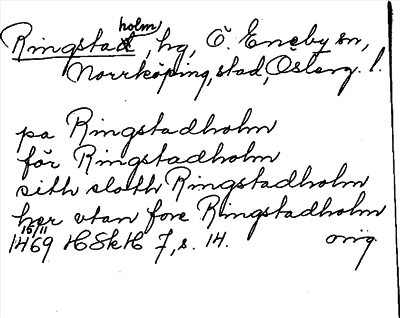 Ringstadholm, hg, Ö. Eneby sn,
Norrköping, stad, Österg. l.
pa Ringstadholm
för Ringstadholm
sith sloth Ringstadholm
her vtan fore Ringstadholm
1469 15/11 HSkH 7, s. 14. orig.